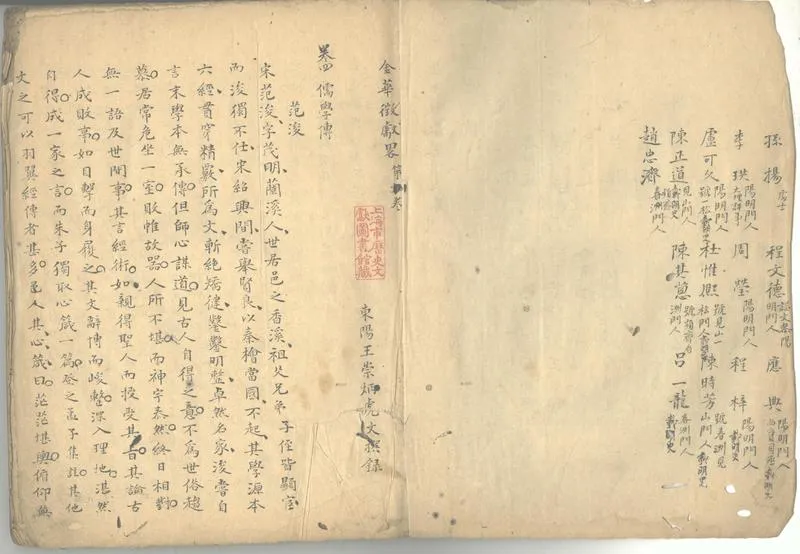 孫揚 處士 程文德 諡文恭陽明門人 應典 陽明門人 載明史
李珙 陽明門人大理評事 周瑩 陽明門人 程梓 陽明門人載明史
盧可久 陽明門人號一松載明史 杜惟熙 號見山一松門人載明史 陳時芳 號春洲見山門人載明史
陳正道 見山門人載明史 陳其蒽 號類齋春洲門人 呂一龍 春洲門人載明史
趙忠濟 春洲門人
金華徵獻畧 第 卷
上海市歷史文獻圖書館藏
東陽王崇炳虎文撰錄
卷四 儒學傳
范浚
宋范浚字茂明蘭溪人世居邑之香溪祖父兄弟子侄皆顯宦
而浚獨不仕宋紹興間嘗舉賢良以秦檜當國不起其學源本
六經貫穿精覈所為文嶄絕矯健鑿鑿明整卓然名家浚嘗自
言末學本無承傳但師心謀道見古人自得之意不為世俗趨
慕居常危坐一室敗帷故器人所不堪而神宇泰然終日相對
無一語及世間事其言經術如親得聖人而授受其旨其論古
人成敗事如目擊而身履之其文辭博而峻整深入理地湛然
自得成一家之言而朱子獨取心箴一篇登之孟子集註其他
文之可以羽翼經傳者甚多邑人其心箴曰茫茫堪輿俯仰無